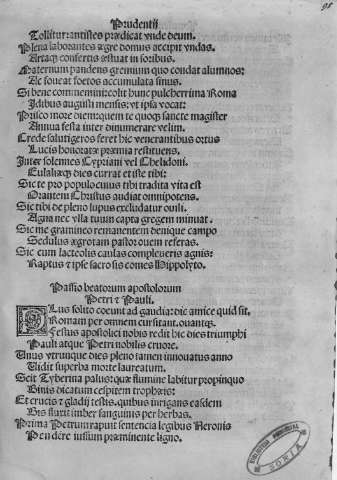 95
Prudentij
Tollitur: antistes prædicat vnde deum.
Plena laborantes ægre domus accipit vndas.
Artaqꝫ confertis æstuat in foribus.
Maternum pandens gremium quo condat alumnos:
Ac foueat foetos accumulata sinus.
Si bene commemini: colit hunc pulcherrima Roma
Idibus augusti mensis: vt ipsa vocat:
Prisco more diem: quem te quoqꝫ sancte magister
Annua festa inter dinumerare velim.
Crede salutigeros feret hic venerantibus ortus
Lucis honoratæ præmia restituens.
Inter solemnes Cypriani vel Chelidoni.
Eulaliæqꝫ dies currat et iste tibi:
Sic te pro populo cuius tibi tradita vita est
Orantem Christus audiat omnipotens.
Sic tibi de pleno lupus excludatur ouili.
Agna nec vlla tuum capta gregem minuat.
Sic me gramineo remanentem denique campo
Sedulus ægrotam pastor ouem referas.
Sic cum lacteolis caulas compleueris agnis:
Raptus & ipse sacro sis comes Hippolyto.
Passio beatorum apostolorum
Petri & Pauli.
PLus solito coeunt ad gaudia: dic amice quid sit.
Romam per omnem cursitant. ouantqꝫ.
Festus apostolici nobis redit hic dies triumphi
Pauli atque Petri nobilis cruore.
Unus vtrunque dies pleno tamen innouatus anno
Uidit superba morte laureatum.
Scit Tyberina palus: quæ flumine labitur propinquo
Binis dicatum cespitem trophæis:
Et crucis & gladij testis. quibus irrigans easdem
Bis fluxit imber sanguinis per herbas.
Prima Petrum rapuit sentencia legibus Neronis
Pendere iussum præminente ligno.
BIBLIOTECA PROVINCIAL
SORIA